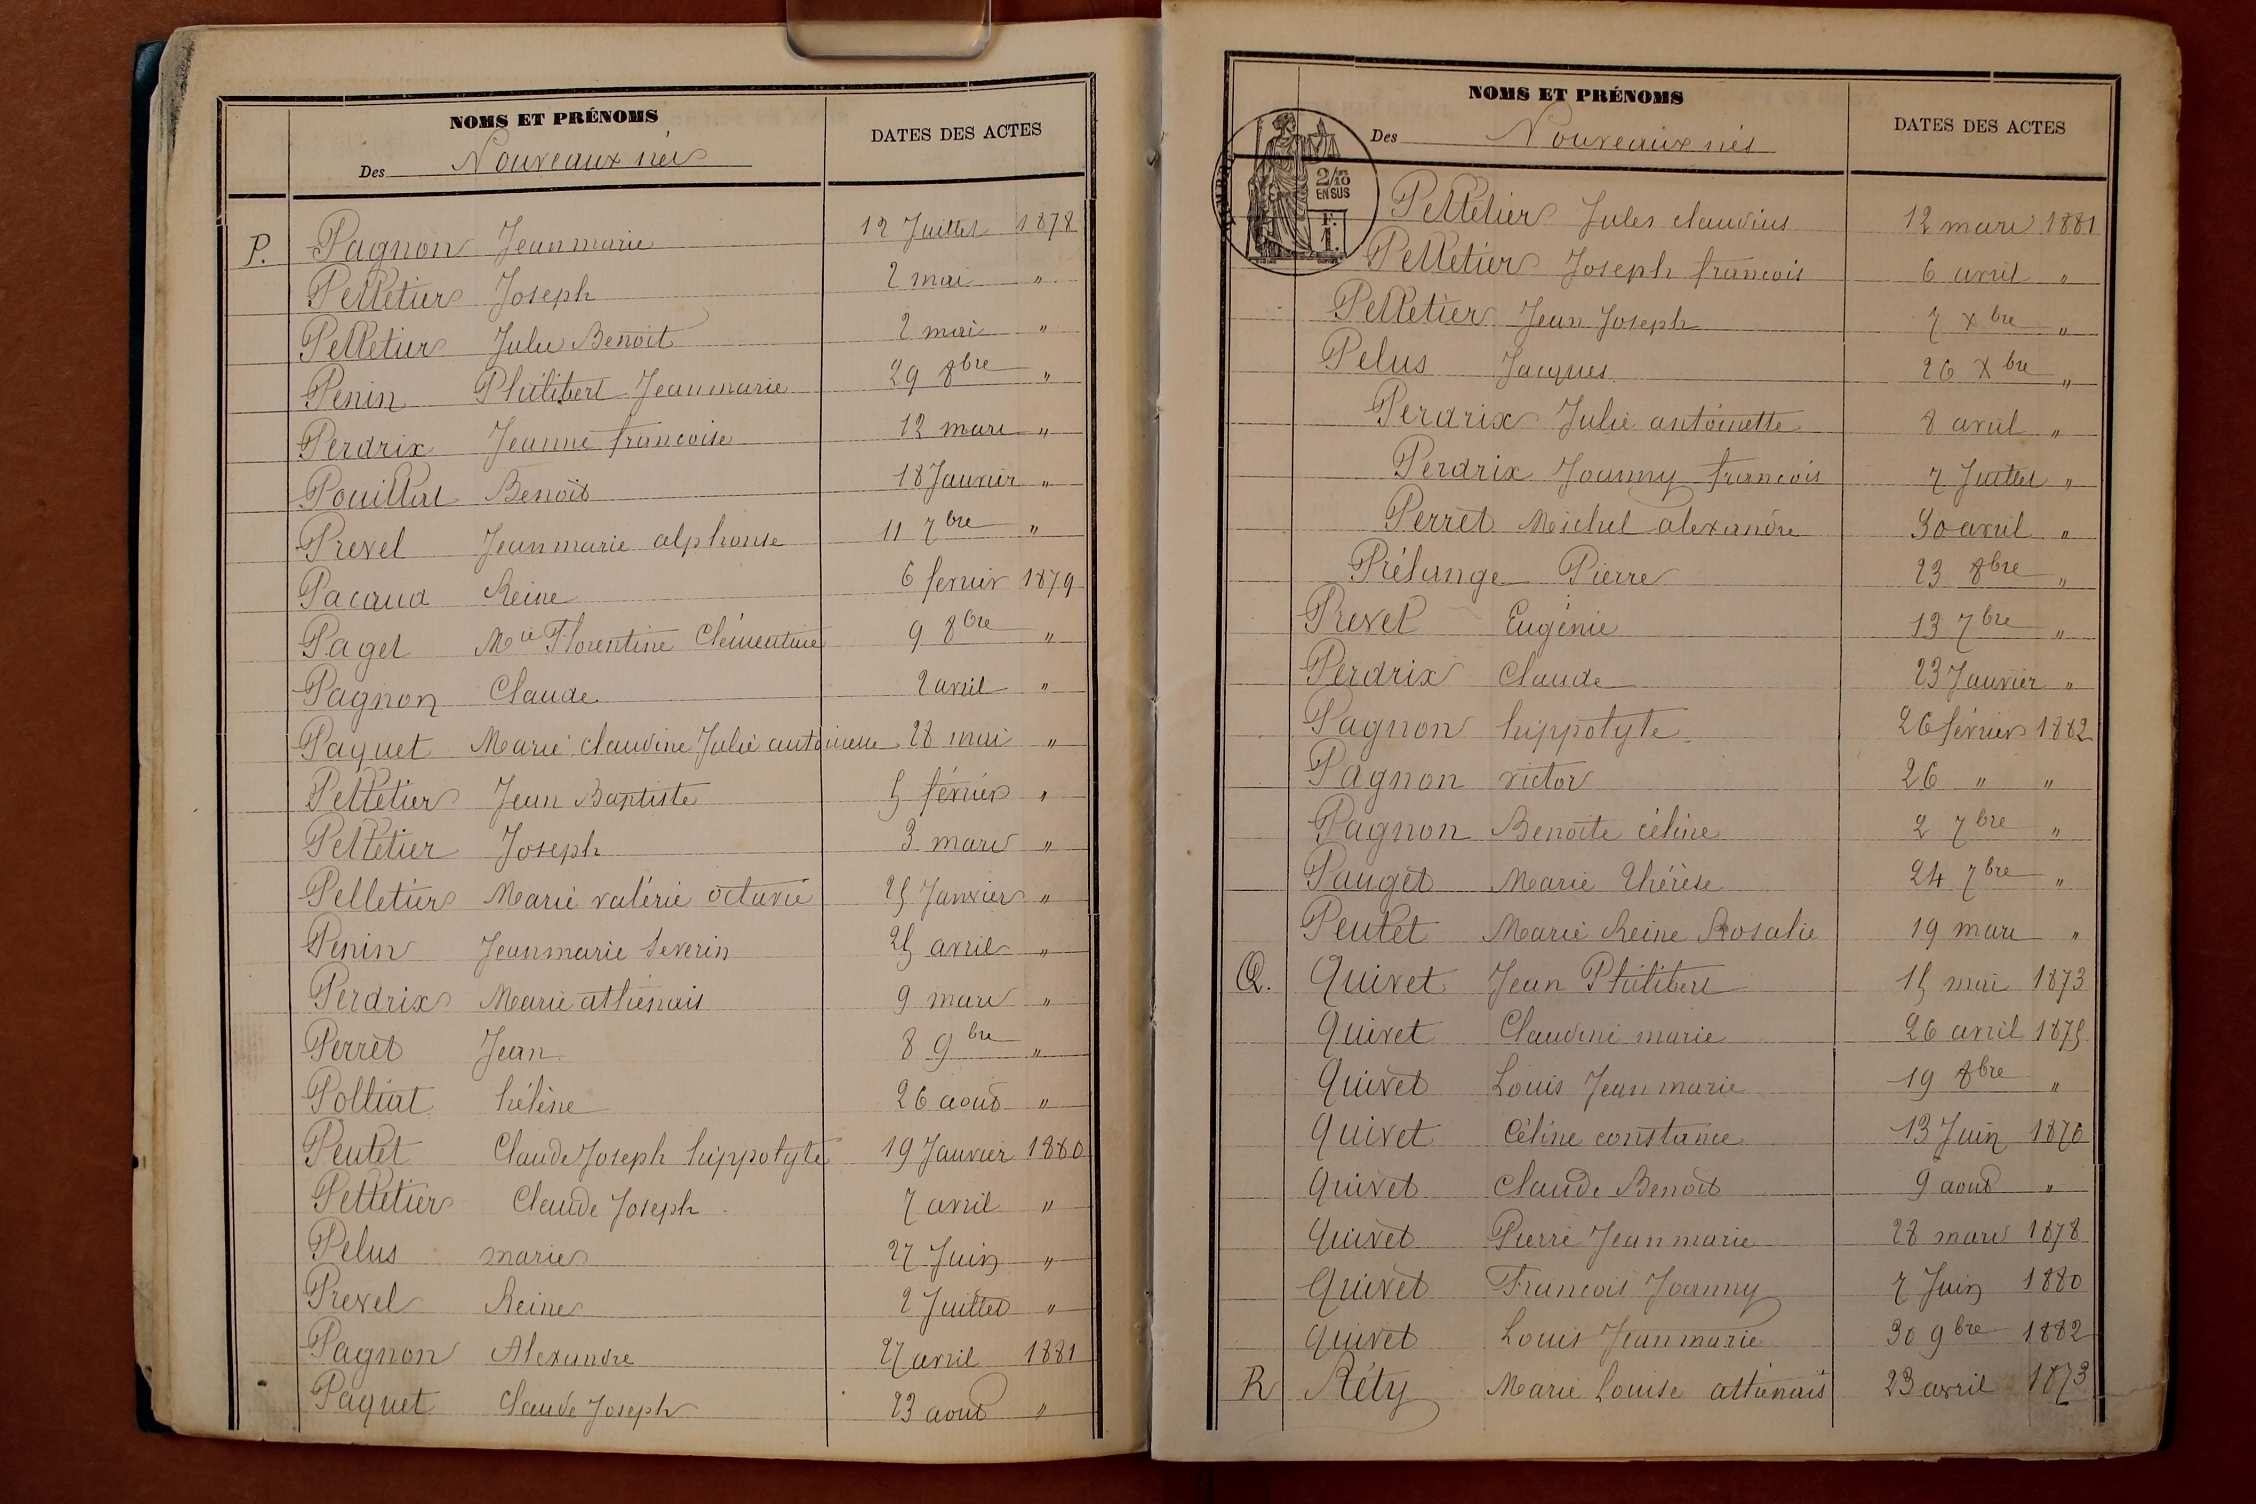 NOMS ET PRÉNOMS
Des Nouveaux nés
DATES DES ACTES
P. Pagnon Jeanmarie 12 Juillet 1878
Pelletier Joseph 2 mai "
Pelletier Jules Benoit 2 mai "
Penin Philibert Jeanmarie 29 8bre "
Perdrix Jeanne francoise 12 mars "
Pouillat Benoit 18 Janvier "
Prevel Jeanmarie alphonse 11 7bre "
Pacaud Reine 6 fevrier 1879
Paget Mie Florentine Clémentine 9 8bre "
Pagnon Claude 2 avril "
Paquet Marie claudine Julie antoinette 28 mai "
Pelletier Jean Baptiste 5 février "
Pelletier Joseph 3 mars "
Pelletier Marie valérie octavie 25 Janvier "
Penin Jeanmarie Severin 25 avril "
Perdrix Marie athénais 9 mars "
Perret Jean 8 9bre "
Polliat hélène 26 aout "
Peutet Claude Joseph hippolyte 19 Janvier 1880
Pelletier Claude Joseph 7 avril "
Pelus marie 27 Juin "
Prevel Reine 2 Juillet "
Pagnon Alexandre 27 avril 1881
Paquet Claude Joseph 23 aout "
NOMS ET PRÉNOMS
Des Nouveaux nés
DATES DES ACTES
2/10
EN SUS
F.
1.
Pelletier Jules claudius 12 mars 1881
Pelletier Joseph francois 6 avril "
Pelletier Jean Joseph 7 Xbre "
Pelus Jacques 26 Xbre "
Perdrix Julie antoinette 8 avril "
Perdrix Joanny francois 7 Juillet "
Perret Michel alexandre 30 avril "
Prélange Pierre 23 8bre "
Prevel Eugénie 13 7bre "
Perdrix Claude 23 Janvier "
Pagnon hippolyte 26 février 1882
Pagnon victor 26 " "
Pagnon Benoite céline 2 7bre "
Pauget Marie Thérèse 24 7bre "
Peutet Marie Reine Rosalie 19 mars "
Q. Quivet Jean Philibert 15 mai 1873
Quivet Claudine marie 26 avril 1875
Quivet Louis Jean marie 19 8bre "
Quivet Céline constance 13 Juin 1876
Quivet Claude Benoit 9 aout "
Quivet Pierre Jean marie 28 mars 1878
Quivet Francois Joanny 7 Juin 1880
Quivet Louis Jeanmarie 30 9bre 1882
R Réty Marie Louise athénais 23 avril 1873